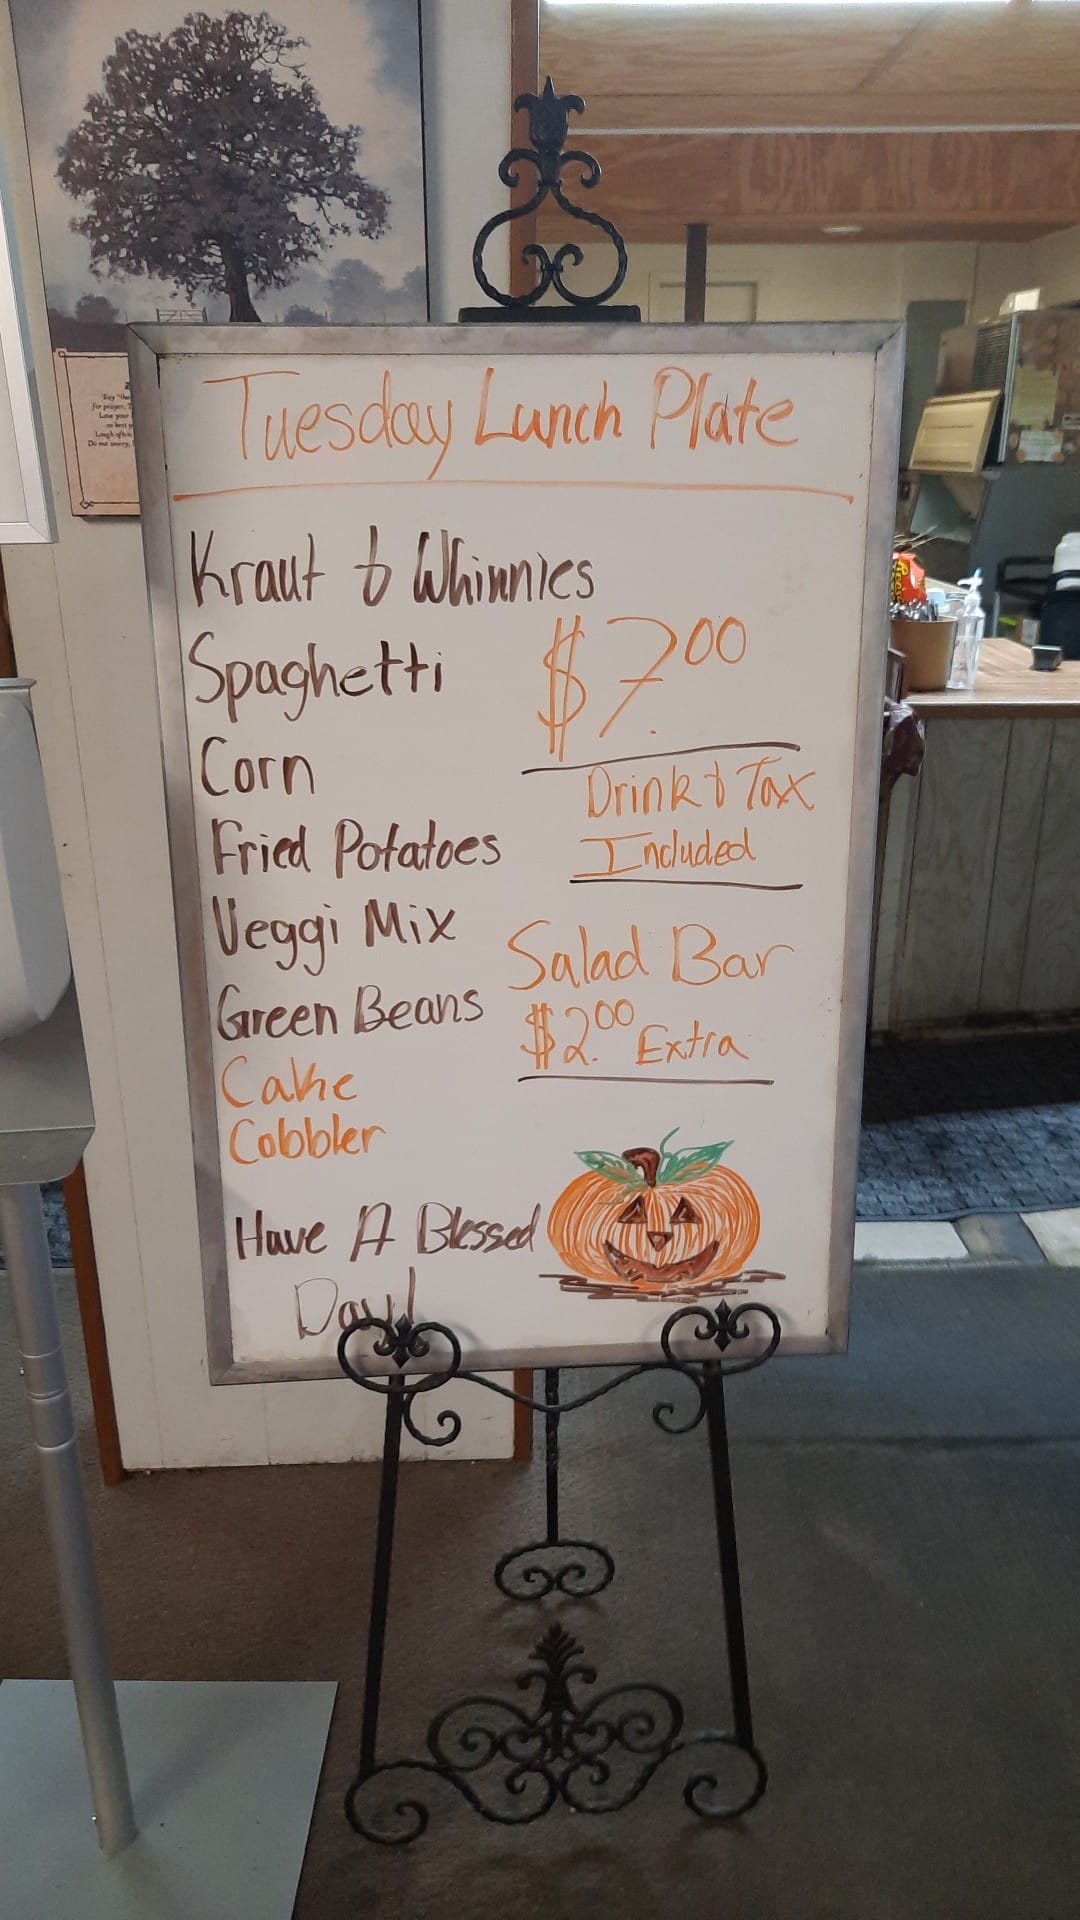 Tuesday Lunch Plate
Kraut & Whinnies
Spaghetti
Corn
Fried Potatoes
Veggi Mix
Green Beans
Cake
Cobbler
$7.00
Drink & Tax
Included
Salad Bar
$2.00 Extra
Have A Blessed
Day!